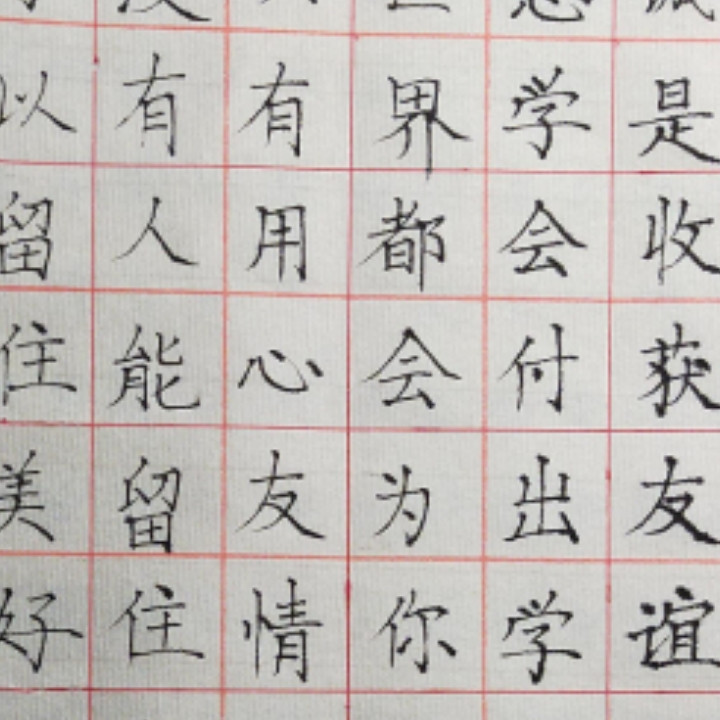 是收获友谊
学会付出学
界都会为你
有用心友情
有人能留住
以留住美好